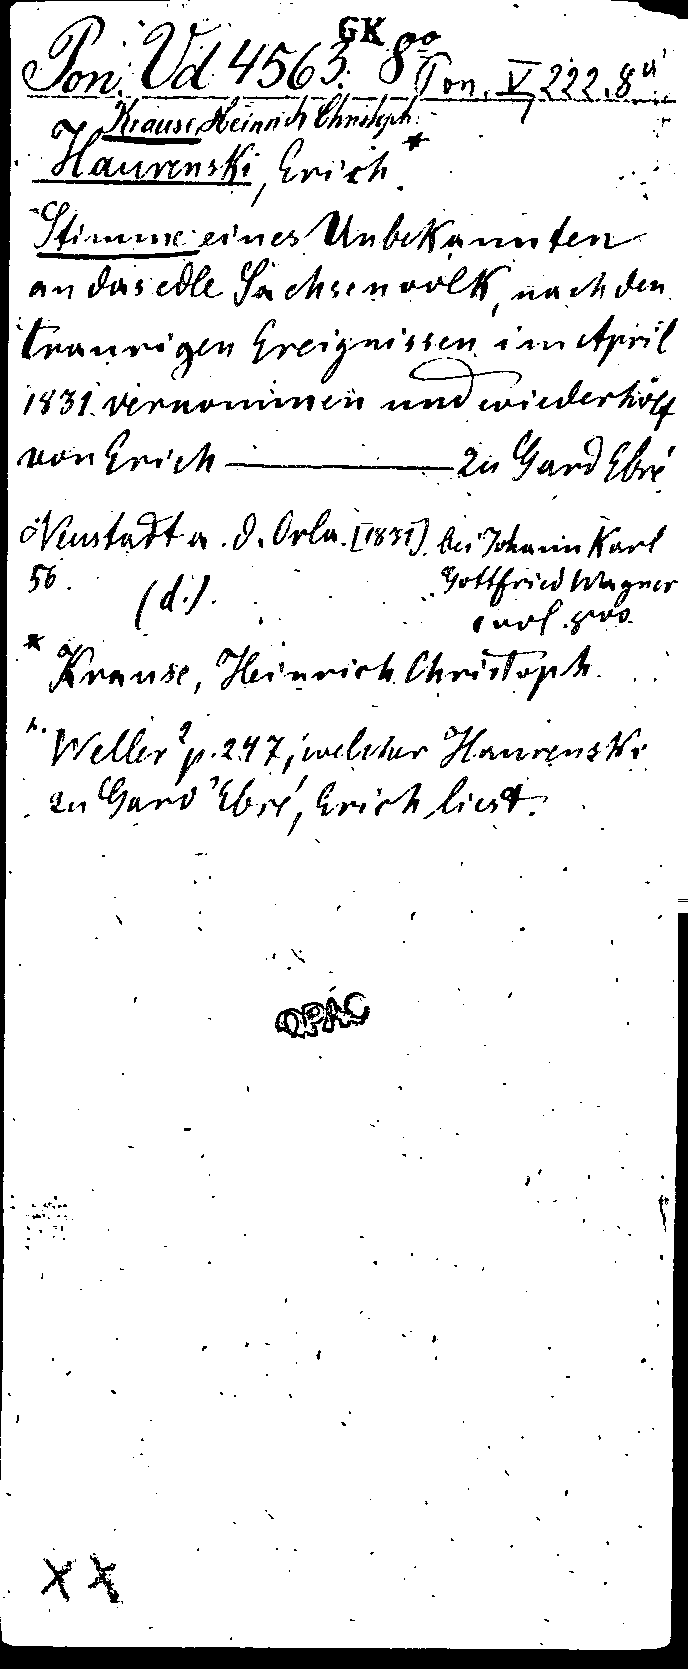 GK
Pon. Vd 4563. 8°° Pon. V, 222. 8°
Krause Heinrich Christoph
Haurenski, Erich.*
Stimme eines Unbekannten
an das edle Sachsenvolk, nach den
traurigen Ereignissen im April
1831. vernommen und wiederholt
von Erich ——— zu Gard Ebré
Neustadt a. d. Orla. [1831]. bei Johann Karl
56. Gottfried Wagner
(d.).
* Krause, Heinrich Christoph.
Weller² p. 247, welcher Haurenski
zu Gard Ebré, Erich liest.
OPAC
X X